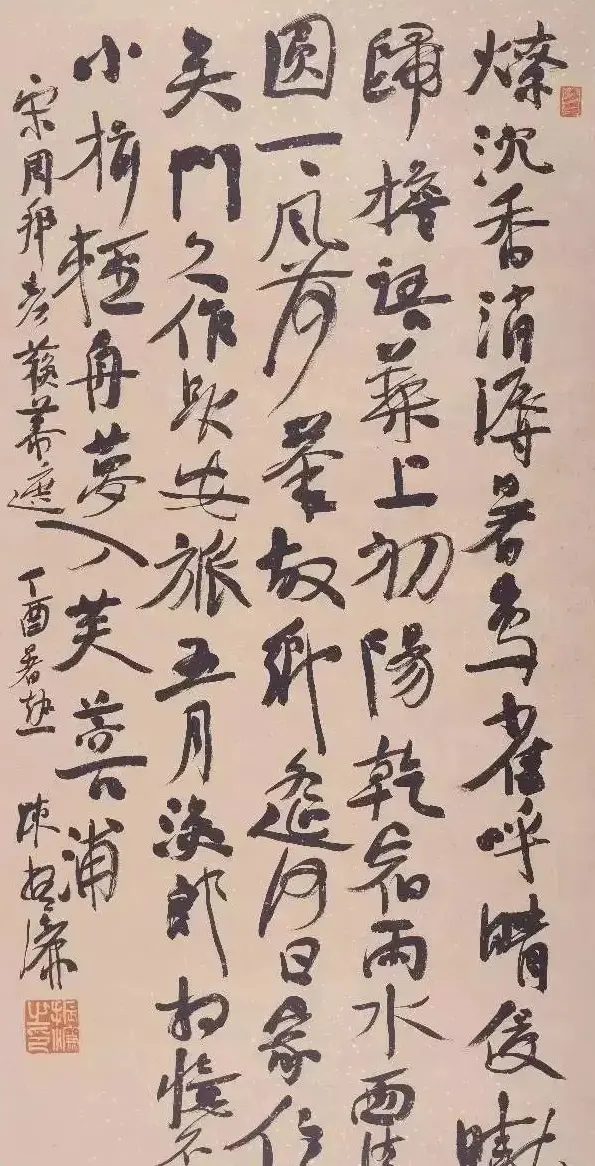 燎沈香消溽暑鳥雀呼晴侵曉
歸檐語葉上初陽乾宿雨水面清
圓一、風荷舉故鄉遙何日家住
吳門久作長安旅五月漁郎相憶否
小楫輕舟夢入芙蓉浦
宋周邦彥蘇幕遮 丁酉暑熱 陳振濂
振濂之印